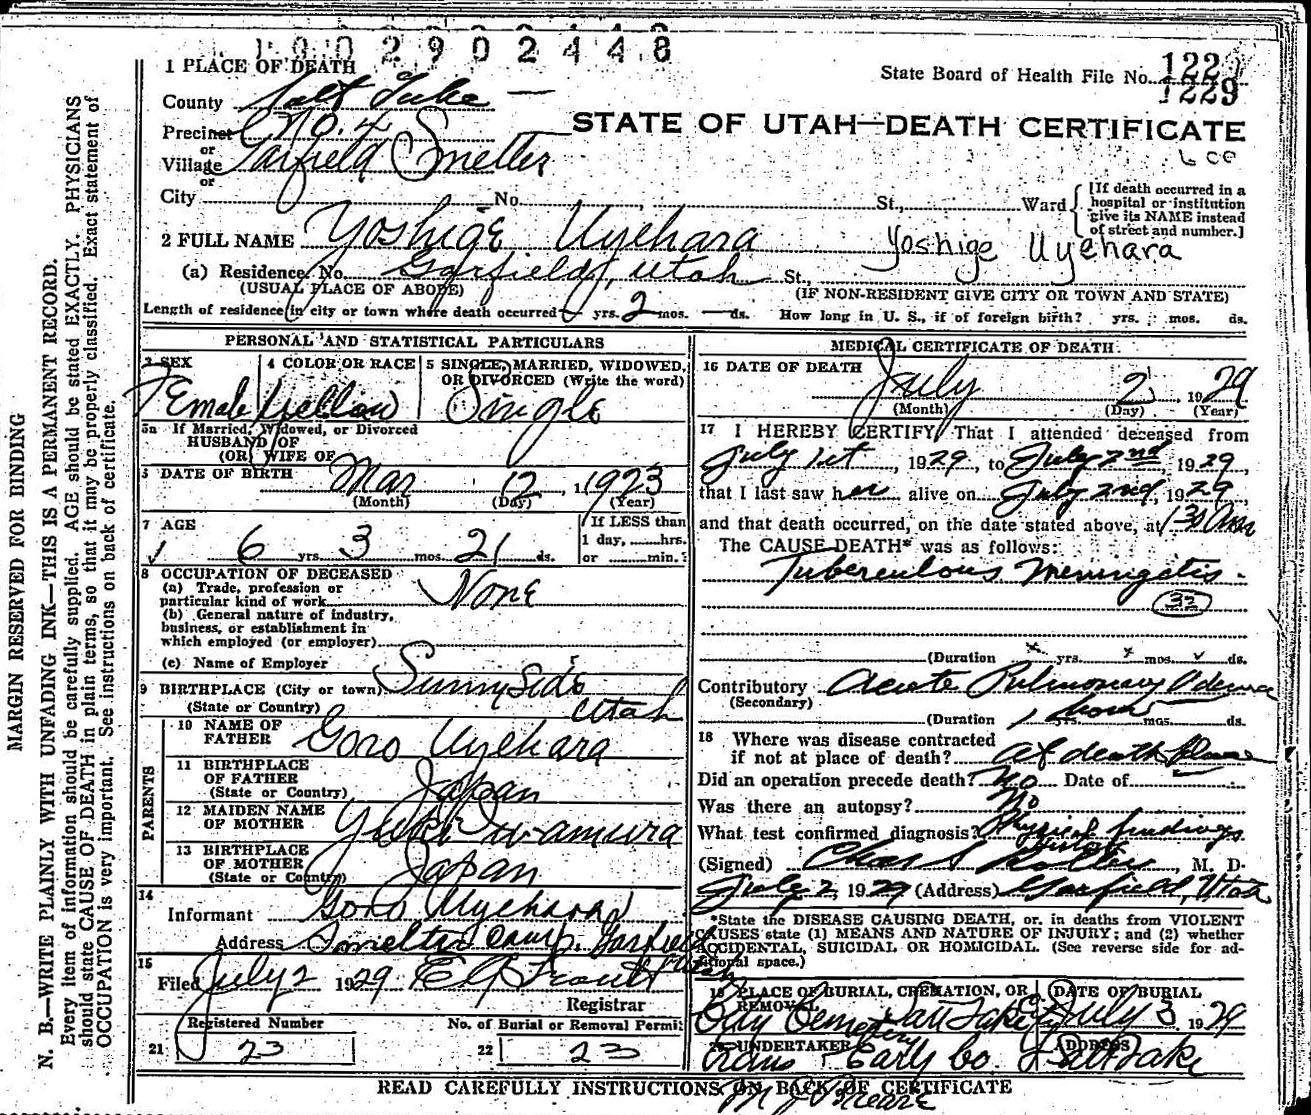 1002902448
1 PLACE OF DEATH
State Board of Health File No. 1229
1229
County Salt Lake —
Precinct No. 4
STATE OF UTAH—DEATH CERTIFICATE
or
Village Garfield Smelter
or
City No. St., Ward
[If death occurred in a hospital or institution give its NAME instead of street and number.]
2 FULL NAME Yoshige Uyehara Yoshige Uyehara
(a) Residence, No. Garfield, Utah St.,
(USUAL PLACE OF ABODE) (IF NON-RESIDENT GIVE CITY OR TOWN AND STATE)
Length of residence in city or town where death occurred — yrs. 2 mos. — ds. How long in U. S., if of foreign birth? yrs. mos. ds.
PERSONAL AND STATISTICAL PARTICULARS
3 SEX
Female
4 COLOR OR RACE
Yellow
5 SINGLE, MARRIED, WIDOWED, OR DIVORCED (Write the word)
Single
5a If Married, Widowed, or Divorced
HUSBAND OF
(OR) WIFE OF
6 DATE OF BIRTH Mar 12, 1923
(Month) (Day) (Year)
7 AGE
6 yrs. 3 mos. 21 ds.
If LESS than
1 day, hrs.
or min.?
8 OCCUPATION OF DECEASED
(a) Trade, profession or
particular kind of work None
(b) General nature of industry,
business, or establishment in
which employed (or employer)
(c) Name of Employer
9 BIRTHPLACE (City or town) Sunnyside
(State or Country) Utah
PARENTS
10 NAME OF
FATHER Goro Uyehara
11 BIRTHPLACE
OF FATHER
(State or Country) Japan
12 MAIDEN NAME
OF MOTHER Yuki
13 BIRTHPLACE
OF MOTHER
(State or Country) Japan
14
Informant Goro Uyehara
Address Smelter Camp, Garfield Utah
15
Filed July 2 1929
Registrar
Registered Number
21 23
No. of Burial or Removal Permit
22 23
MEDICAL CERTIFICATE OF DEATH
16 DATE OF DEATH
July 2, 1929
(Month) (Day) (Year)
17 I HEREBY CERTIFY, That I attended deceased from
July 1st, 1929, to July 2nd, 1929,
that I last saw her alive on July 2nd, 1929,
and that death occurred, on the date stated above, at 1 30 Am
The CAUSE DEATH* was as follows:
Tuberculous Meningitis.
32
(Duration yrs. mos. ds.
Contributory Acute Pulmonary Odema
(Secondary)
(Duration 1 hour yrs. mos. ds.
18 Where was disease contracted
if not at place of death? at death place
Did an operation precede death? No Date of
Was there an autopsy? No
What test confirmed diagnosis? Physical findings
(Signed) Chas M. D.
July 2, 1929 (Address) Garfield, Utah
*State the DISEASE CAUSING DEATH, or, in deaths from VIOLENT
CAUSES state (1) MEANS AND NATURE OF INJURY; and (2) whether
ACCIDENTAL, SUICIDAL OR HOMICIDAL. (See reverse side for ad-
ditional space.)
19 PLACE OF BURIAL, CREMATION, OR REMOVAL
City Cemetery Salt Lake City
DATE OF BURIAL
July 3 1929
20 UNDERTAKER
Early Co.
ADDRESS
Salt Lake
READ CAREFULLY INSTRUCTIONS ON BACK OF CERTIFICATE
MARGIN RESERVED FOR BINDING
N. B.—WRITE PLAINLY WITH UNFADING INK—THIS IS A PERMANENT RECORD.
Every item of information should be carefully supplied. AGE should be stated EXACTLY. PHYSICIANS
should state CAUSE OF DEATH in plain terms, so that it may be properly classified. Exact statement of
OCCUPATION is very important. See instructions on back of certificate.